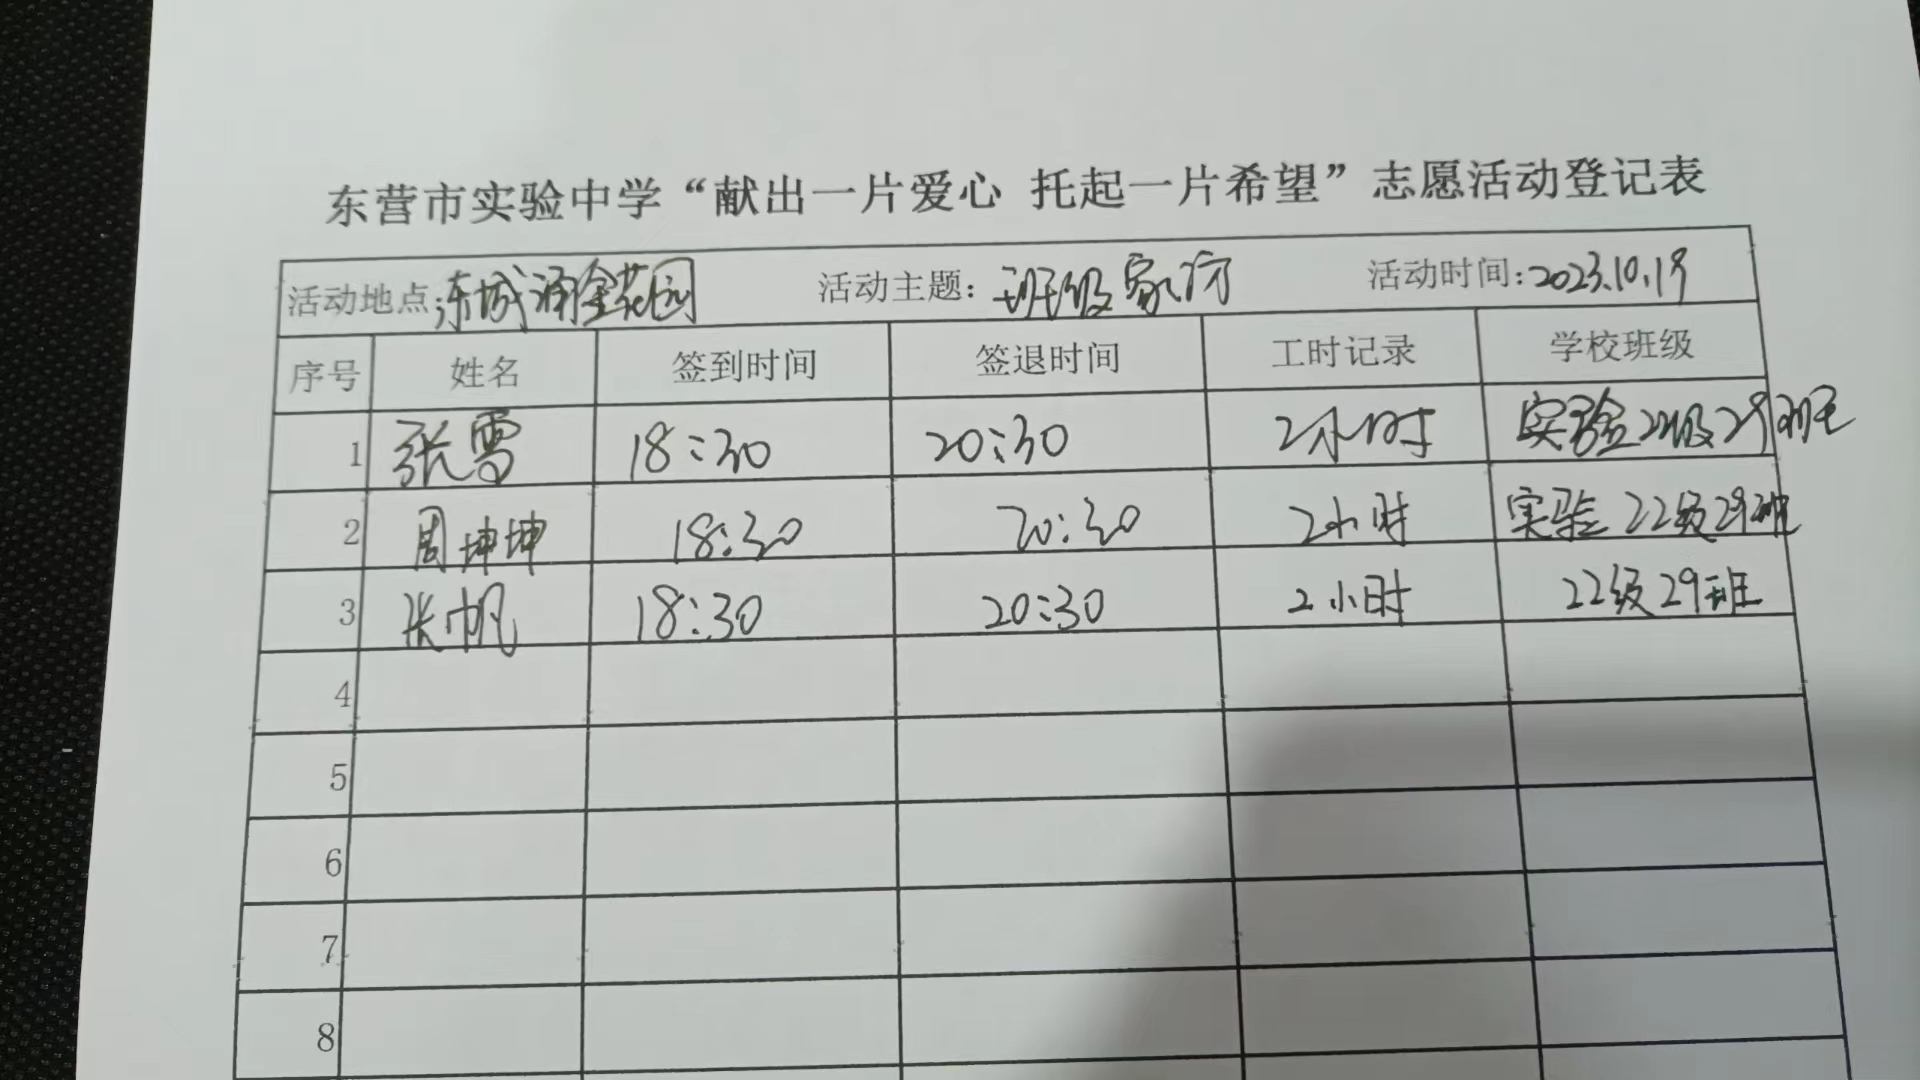 东营市实验中学“献出一片爱心 托起一片希望”志愿活动登记表
活动地点:东城涌金花园 活动主题:班级家访 活动时间:2023.10.19
序号 姓名 签到时间 签退时间 工时记录 学校班级
1 张雪 18:30 20:30 2小时 实验22级29班
2 周坤坤 18:30 20:30 2小时 实验22级29班
3 张帆 18:30 20:30 2小时 22级29班
4
5
6
7
8